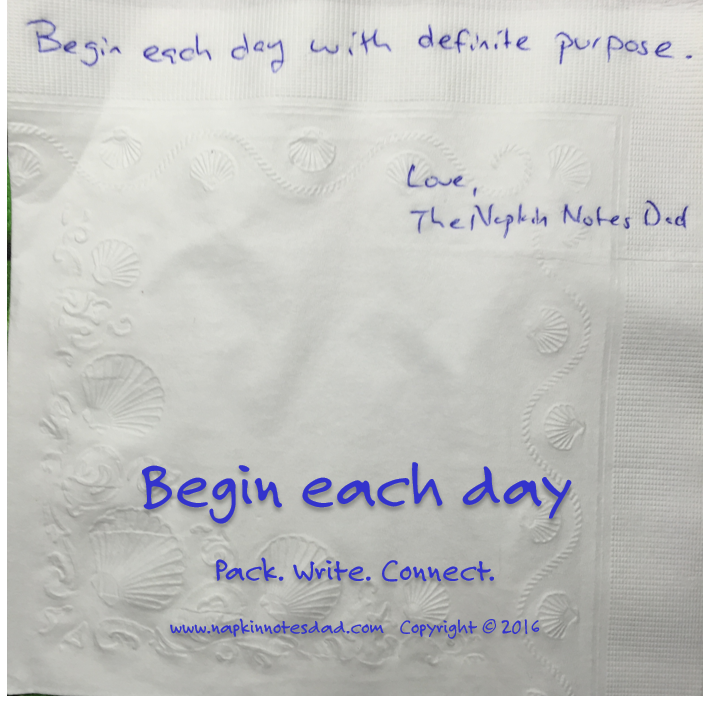 Begin each day with definite purpose.
Love,
The Napkin Notes Dad
Begin each day
Pack. Write. Connect.
www.napkinnotesdad.com Copyright © 2016